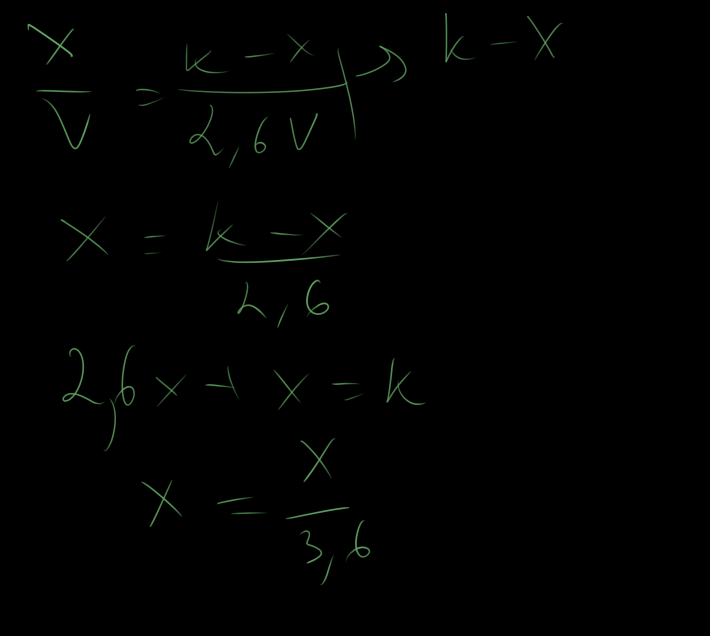 x/V = (k - x)/(2,6 V) > k - x
x = (k - x)/(2,6)
2,6 x + x = k
x = x/(3,6)